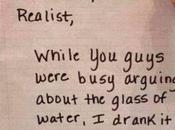 Realist,
While You guys
were busy arguing
about the glass of
water, I drank it